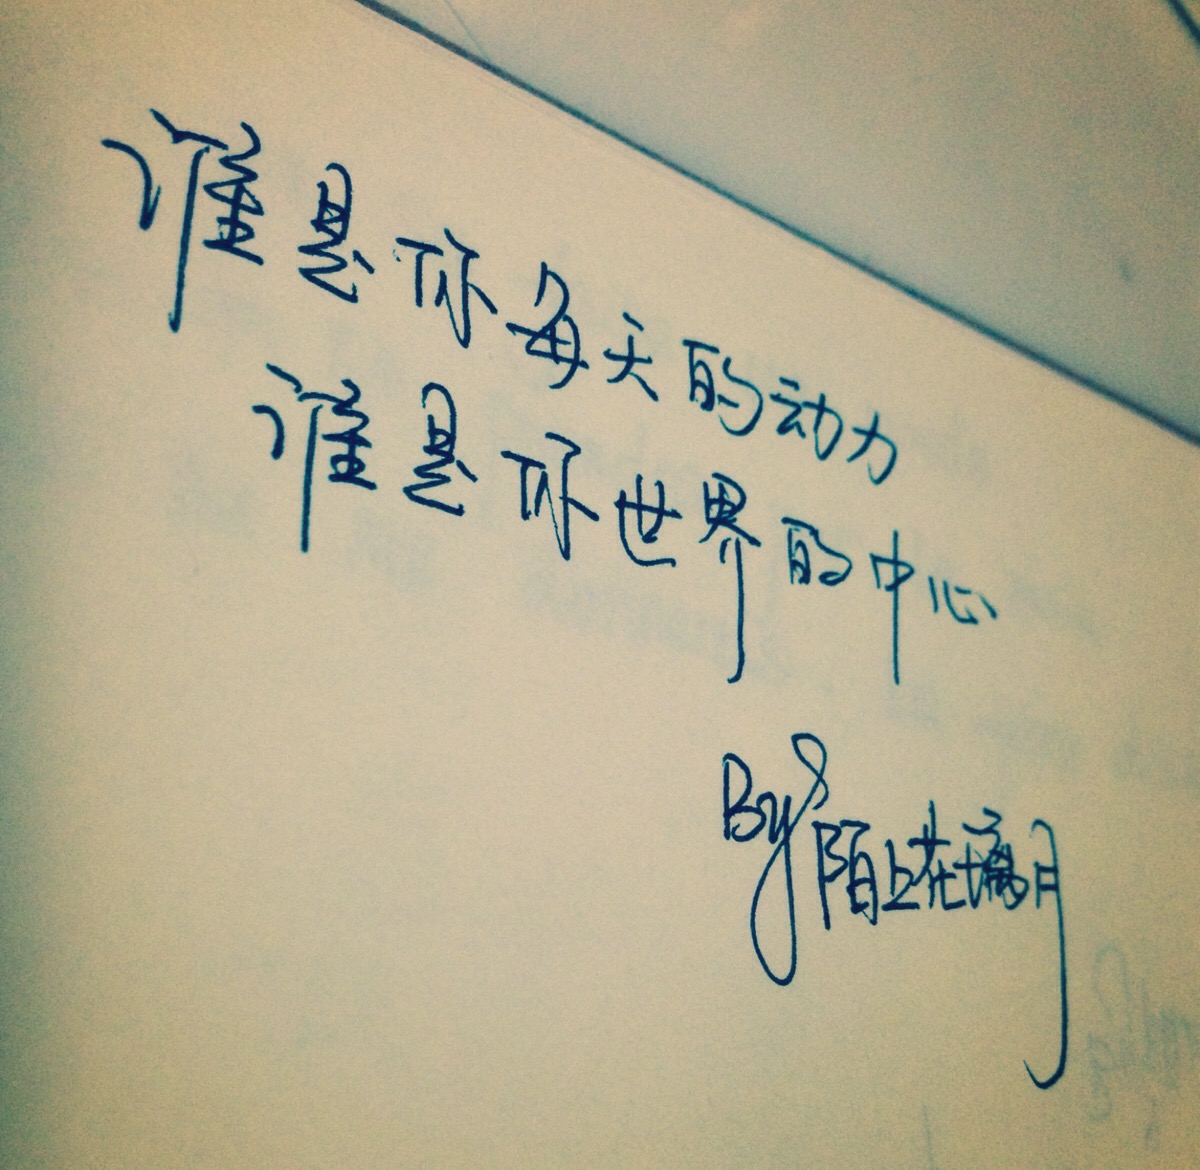 谁是你每天的动力
谁是你世界的中心
By 陌上花璃月